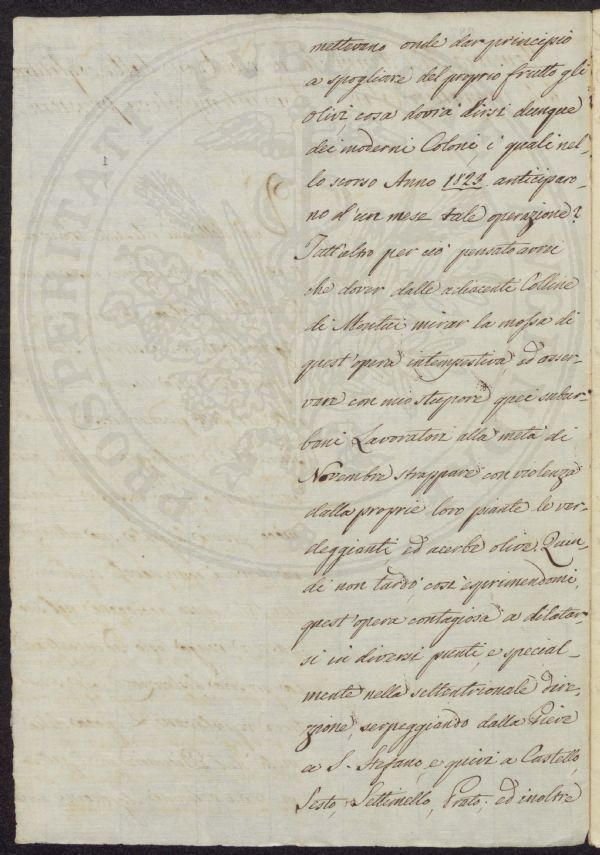 mettevano onde dar principio
a spogliare del proprio frutto gli
olivi, cosa dovrà dirsi dunque
dei moderni Coloni, i quali nel-
lo scorso Anno 1823 anticiparo-
no d'un mese tale operazione?
Tutt'altro per ciò pensato avrei
che dover dalle adiacenti Colline
di Montui mirar la mossa di
quest'opera intempestiva, ed osser-
vare con mio stupore quei subur-
bani Lavoratori alla metà di
Novembre strappare con violenza
dalla proprie loro piante le ver-
deggianti ed acerbe olive. Quin-
di non tardò, così esprimendomi,
quest'opera contagiosa a dilatar-
si in diversi punti, e special-
mente nella settentrionale dire-
zione, serpeggiando dalla Pieve
a S. Stefano, e quivi a Castello,
Sesto, Settimello, Prato; ed inoltre
PROSPERITATI